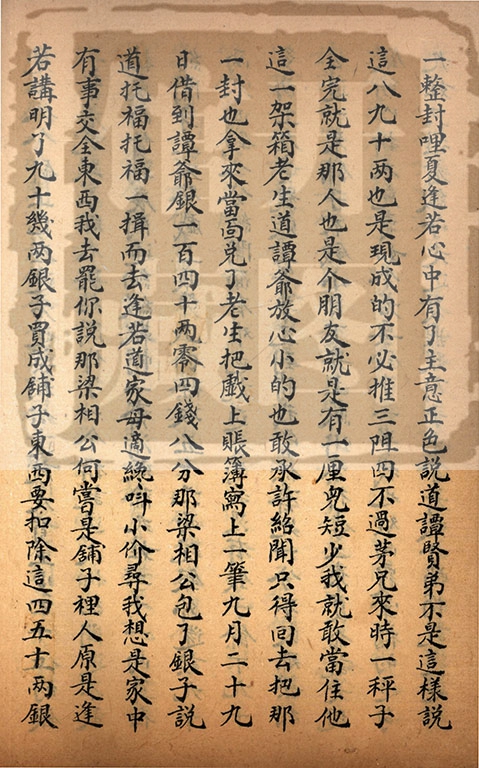 一整封哩夏逢若心中有了主意正色說道譚賢弟不是這樣說
這八九十两也是現成的不必推三阻四不過茅兄來時一秤子
全完就是那人也是个朋友就是有一厘兒短少我就敢當住他
這一架箱老生道譚爺放心小的也敢承許紹聞只得回去把那
一封也拿來當面兑了老生把戲上賬簿寫上一筆九月二十九
日借到譚爺銀一百四十两零四錢八分那梁相公包了銀子說
道托福托福一揖而去逢若道家母適纔呌小价尋我想是家中
有事交全東西我去罷你說那梁相公何嘗是鋪子裡人原是逢
若講明了九十幾两銀子買成鋪子東西要扣除這四五十两銀